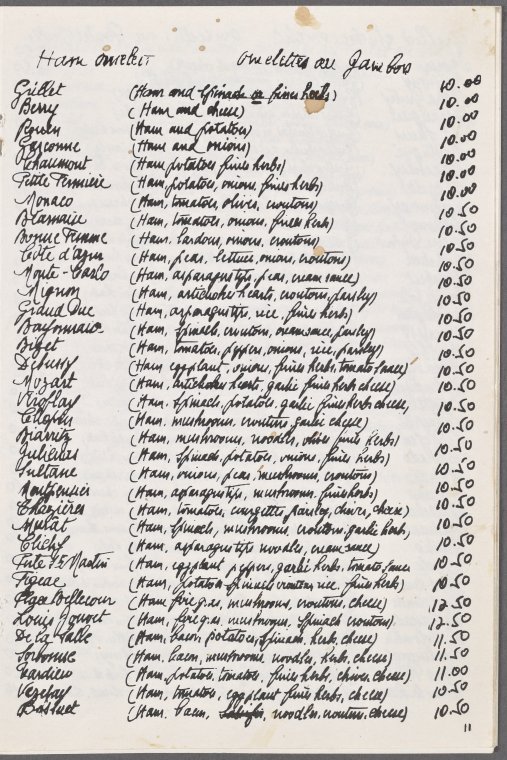 Ham omelet omelettes au Jambon
Grillet (Ham and Spinach or fines herbs) 10.00
Berry (Ham and cheese) 10.00
(Ham and potatoes) 10.00
Gasconne (Ham and onions) 10.00
Chaumont (Ham, potatoes fines herbs) 10.00
Petite Fermiere (Ham, potatoes, onions, fines herbs) 10.00
Monaco (Ham, tomatoes, olives, croutons) 10.50
(Ham, tomatoes, onions, fines herbs) 10.50
Bonne Femme (Ham, lardons, onions, croutons) 10.50
Côte d'azur (Ham, peas, lettuce, onions, croutons) 10.50
Monte-Carlo (Ham, asparagus tips, peas, cream sauce) 10.50
Mignon (Ham, artichokes hearts, croutons, parsley) 10.50
Grand Duc (Ham, asparagus tips, rice, fines herbs) 10.50
Bayonnaise (Ham, spinach, croutons, cream sauce, parsley) 10.50
Bizet (Ham, tomatoes, peppers, onions, rice, parsley) 10.50
Debussy (Ham eggplant, onions, fines herbs, tomato sauce) 10.50
Mozart (Ham, artichokes heart, garlic fines herbs cheese) 10.50
Viroflay (Ham, spinach, potatoes, garlic fines herbs cheese, 10.50
(Ham, mushrooms, croutons, garlic cheese) 10.50
Biarritz (Ham, mushrooms, noodles, olives fines herbs) 10.50
(Ham, spinach, potatoes, onions, fines herbs) 10.50
Sultane (Ham, onions, peas, mushrooms, croutons) 10.50
Montpensier (Ham, asparagus tips, mushrooms, fines herbs) 10.50
(Ham, tomatoes, courgettes parsley, chives, cheese) 10.50
Murat (Ham, spinach, mushrooms, croutons, garlic herbs, 10.50
Clichy (Ham, asparagus tips noodles, cream sauce) 10.50
St Martin (Ham, eggplant peppers, garlic herbs, tomato sauce 10.50
Figeac (Ham, potatoes spinach croutons, rice, fines herbs) 10.50
Place Bellecour (Ham foie gras, mushrooms, croutons, cheese) 12.50
Louis Jouvet (Ham, foie gras, mushrooms, spinach croutons) 12.50
De La Salle (Ham, bacon, potatoes, spinach, herbs, cheese) 11.50
Sorbonne (Ham, bacon, mushrooms, noodles, herbs, cheese) 11.50
(Ham, potatoes, tomatoes, fines herbs, chives, cheese) 11.00
Vezelay (Ham, tomatoes, eggplant fines herbs, cheese) 10.50
Bossuet (Ham, bacon, noodles, croutons, cheese) 10.50
11